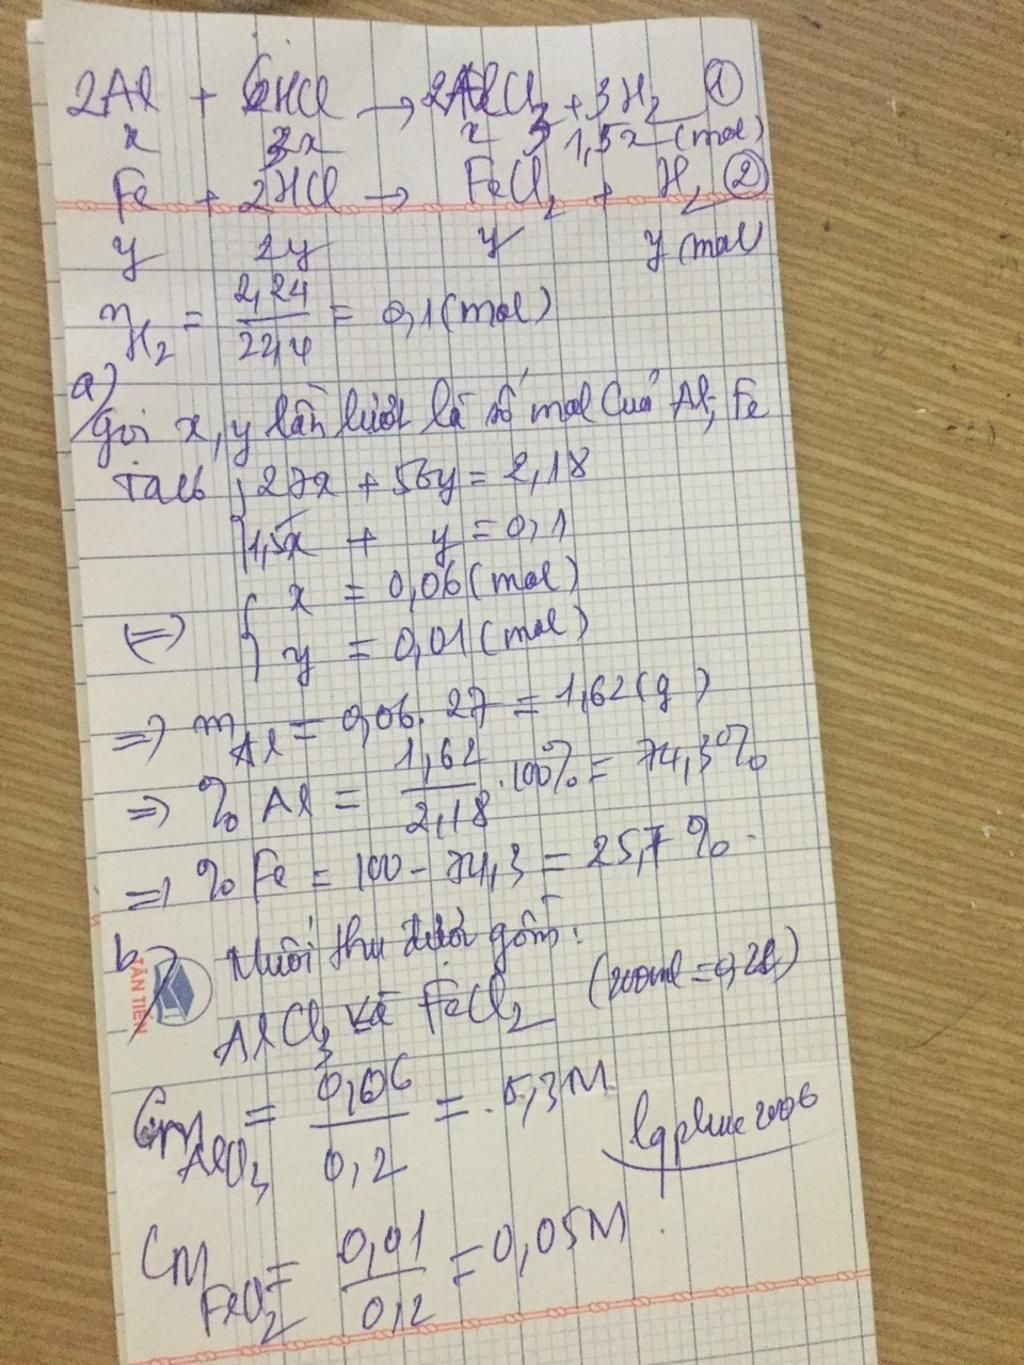 2Al + 6HCl → 2AlCl3 + 3H2 ①
x 3x x 1,5x (mol)
Fe + 2HCl → FeCl2 + H2 ②
y 2y y y mol
nH2 = 2,24/22,4 = 0,1 (mol)
a)
Gọi x, y lần lượt là số mol của Al, Fe
Ta có { 27x + 56y = 2,18
1,5x + y = 0,1
<=> { x = 0,06 (mol)
y = 0,01 (mol)
=> mAl = 0,06. 27 = 1,62 (g)
=> % Al = 1,62/2,18 .100% = 74,3%
=> % Fe = 100 - 74,3 = 25,7 %
b) Muối thu được gồm:
AlCl3 và FeCl2 (200ml = 0,2l)
CM AlCl3 = 0,06/0,2 = 0,3M
lgphuc2006
CM FeCl2 = 0,01/0,2 = 0,05M
TÂN TIẾN